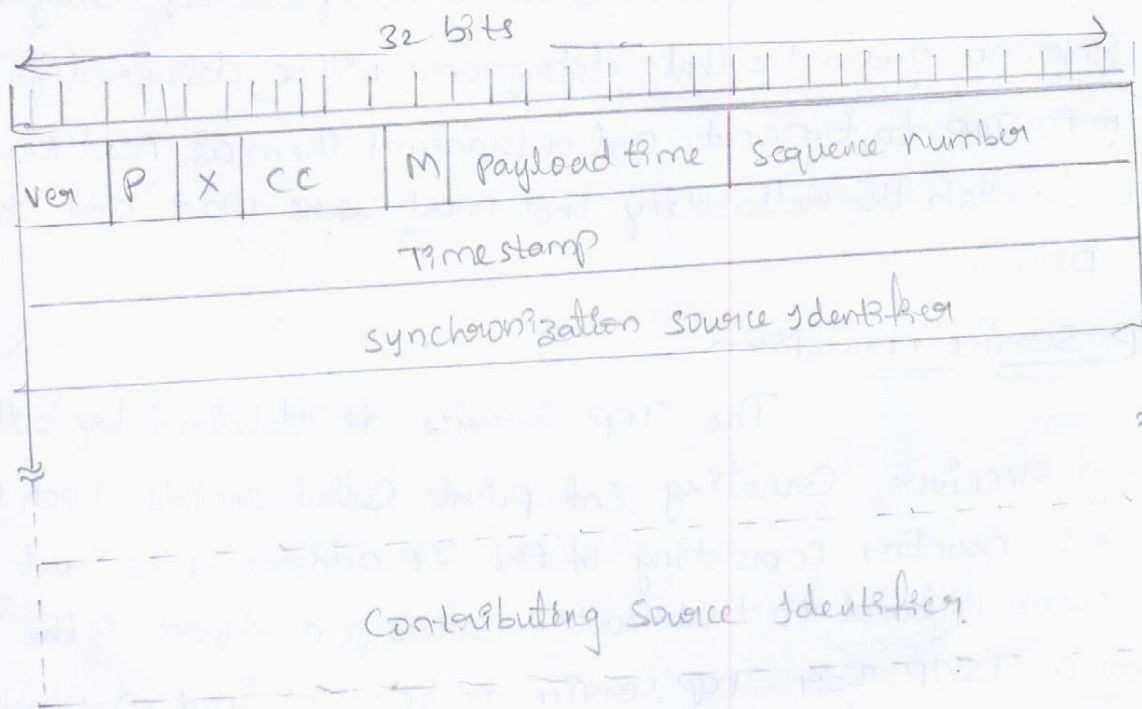 32 bits
Ver P X CC M Payload time Sequence number
Timestamp
Synchronization source Identifier
Contributing source Identifier.